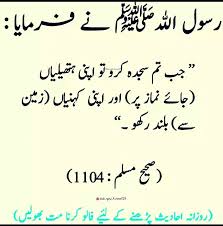 رسول اللہ ﷺ نے فرمایا:
” جب تم سجدہ کرو تو اپنی ہتھیلیاں
(جائے نماز پر) اور اپنی کہنیاں (زمین
سے) بلند رکھو ۔“
(صحیح مسلم: 1104)
(روزانہ احادیث پڑھنے کے لئیے فالو کرنا مت بھولیں)